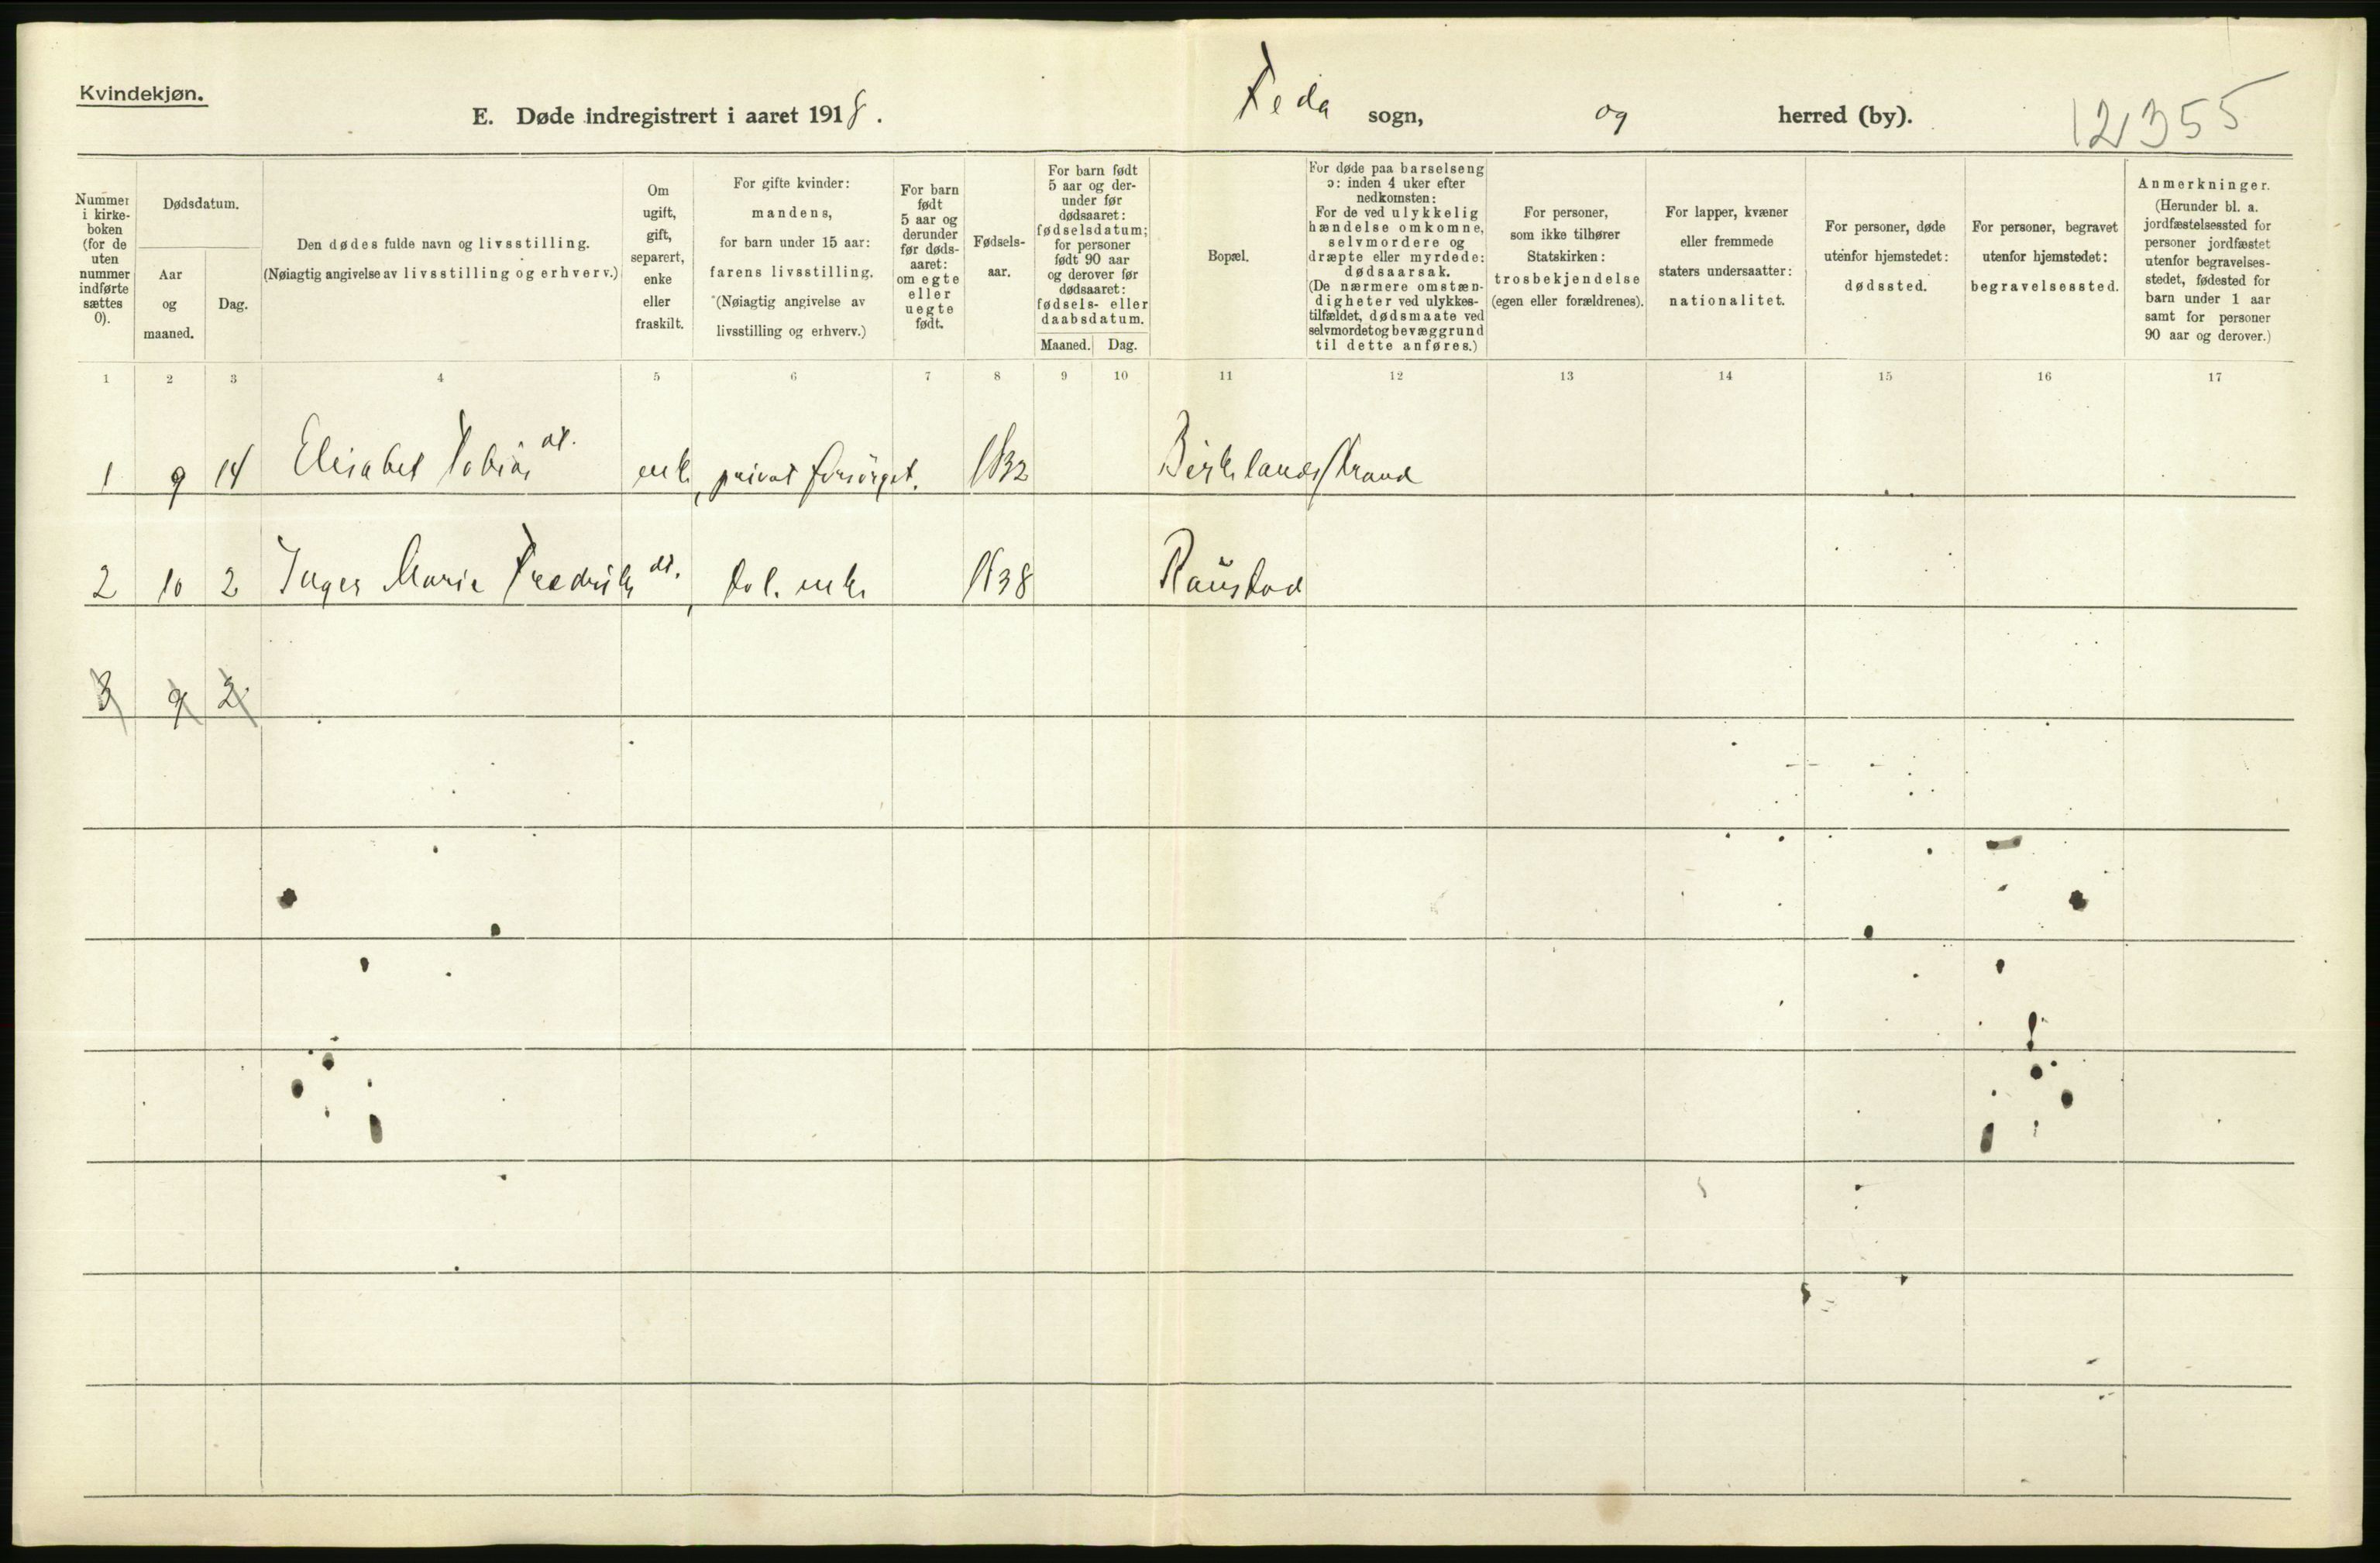 Kvindekjøn.
E. Døde indregistrert i aaret 1918.
Feda sogn, og herred (by).
12355
Nummer i kirke-
boken
(for de
uten
nummer
indførte
sættes
0).
Dødsdatum.
Aar
og
maaned.
Dag.
Den dødes fulde navn og livsstilling.
(Nøiagtig angivelse av livsstilling og erhverv.)
Om
ugift,
gift,
separert,
enke
eller
fraskilt.
For gifte kvinder:
mandens,
for barn under 15 aar:
farens livsstilling.
(Nøiagtig angivelse av
livsstilling og erhverv.)
For barn
født
5 aar og
derunder
før døds-
aaret:
om egte
eller
uegte
født.
Fødsels-
aar.
For barn født
5 aar og der-
under før
dødsaaret:
fødselsdatum;
for personer
født 90 aar
og derover før
dødsaaret:
fødsels- eller
daabsdatum.
Maaned. Dag.
Bopæl.
For døde paa barselseng
ɔ: inden 4 uker efter
nedkomsten:
For de ved ulykkelig
hændelse omkomne,
selvmordere og
dræpte eller myrdede:
dødsaarsak.
(De nærmere omstæn-
digheter ved ulykkes-
tilfældet, dødsmaate ved
selvmordet og bevæggrund
til dette anføres.)
For personer,
som ikke tilhører
Statskirken:
trosbekjendelse
(egen eller forældrenes).
For lapper, kvæner
eller fremmede
staters undersaatter:
nationalitet.
For personer, døde
utenfor hjemstedet:
dødssted.
For personer, begravet
utenfor hjemstedet:
begravelsessted.
Anmerkninger.
(Herunder bl. a.
jordfæstelsessted for
personer jordfæstet
utenfor begravelses-
stedet, fødested for
barn under 1 aar
samt for personer
90 aar og derover.)
1 2 3 4 5 6 7 8 9 10 11 12 13 14 15 16 17
1 9 14 Elisabet Tobias dt. enke, privat forsörget. 1832 Birkelandsstrand
2 10 2 Inger Marie Fredriks dt., fol. enke 1838 Raustad
3 9 2